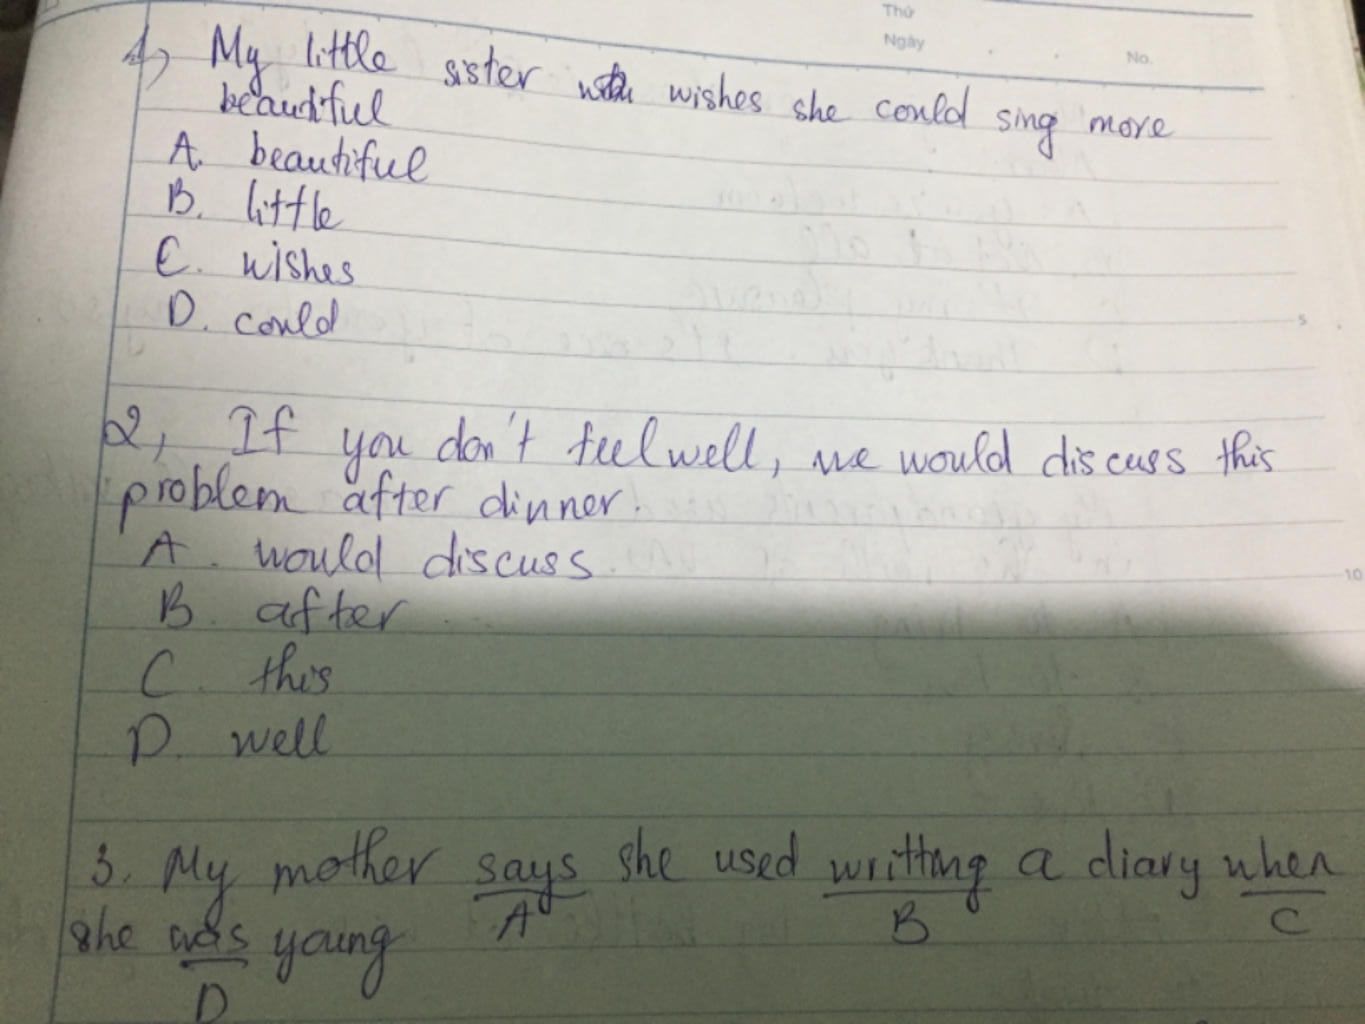 Thứ
Ngày
No.
1, My little sister wishes she could sing more
beautiful
A. beautiful
B. little
C. wishes
D. could
5
2, If you don't feel well, we would discuss this
problem after dinner.
A. would discuss
B. after
10
C. this
D. well
3. My mother says she used writting a diary when
A B C
she was young
D